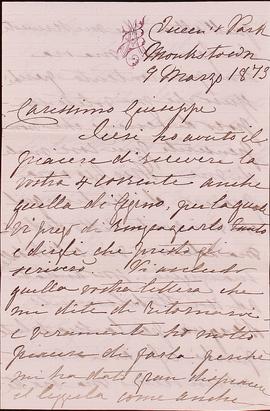 Queen's Park
Monkstown
9 Marzo 1873
Carissimo Giuseppe
Ieri ho avuto il
piacere di ricevere la
vostra 4 corrente anche
quella di per la quale
vi prego di tanto
e dirgli che presto gli
scriverò. Vi accludo
quella vostra lettera che
mi dite di ritornarvi
e veramente ho molto
piacere di farlo perché
mi ha dato gran dispiacere
il leggerla come anche